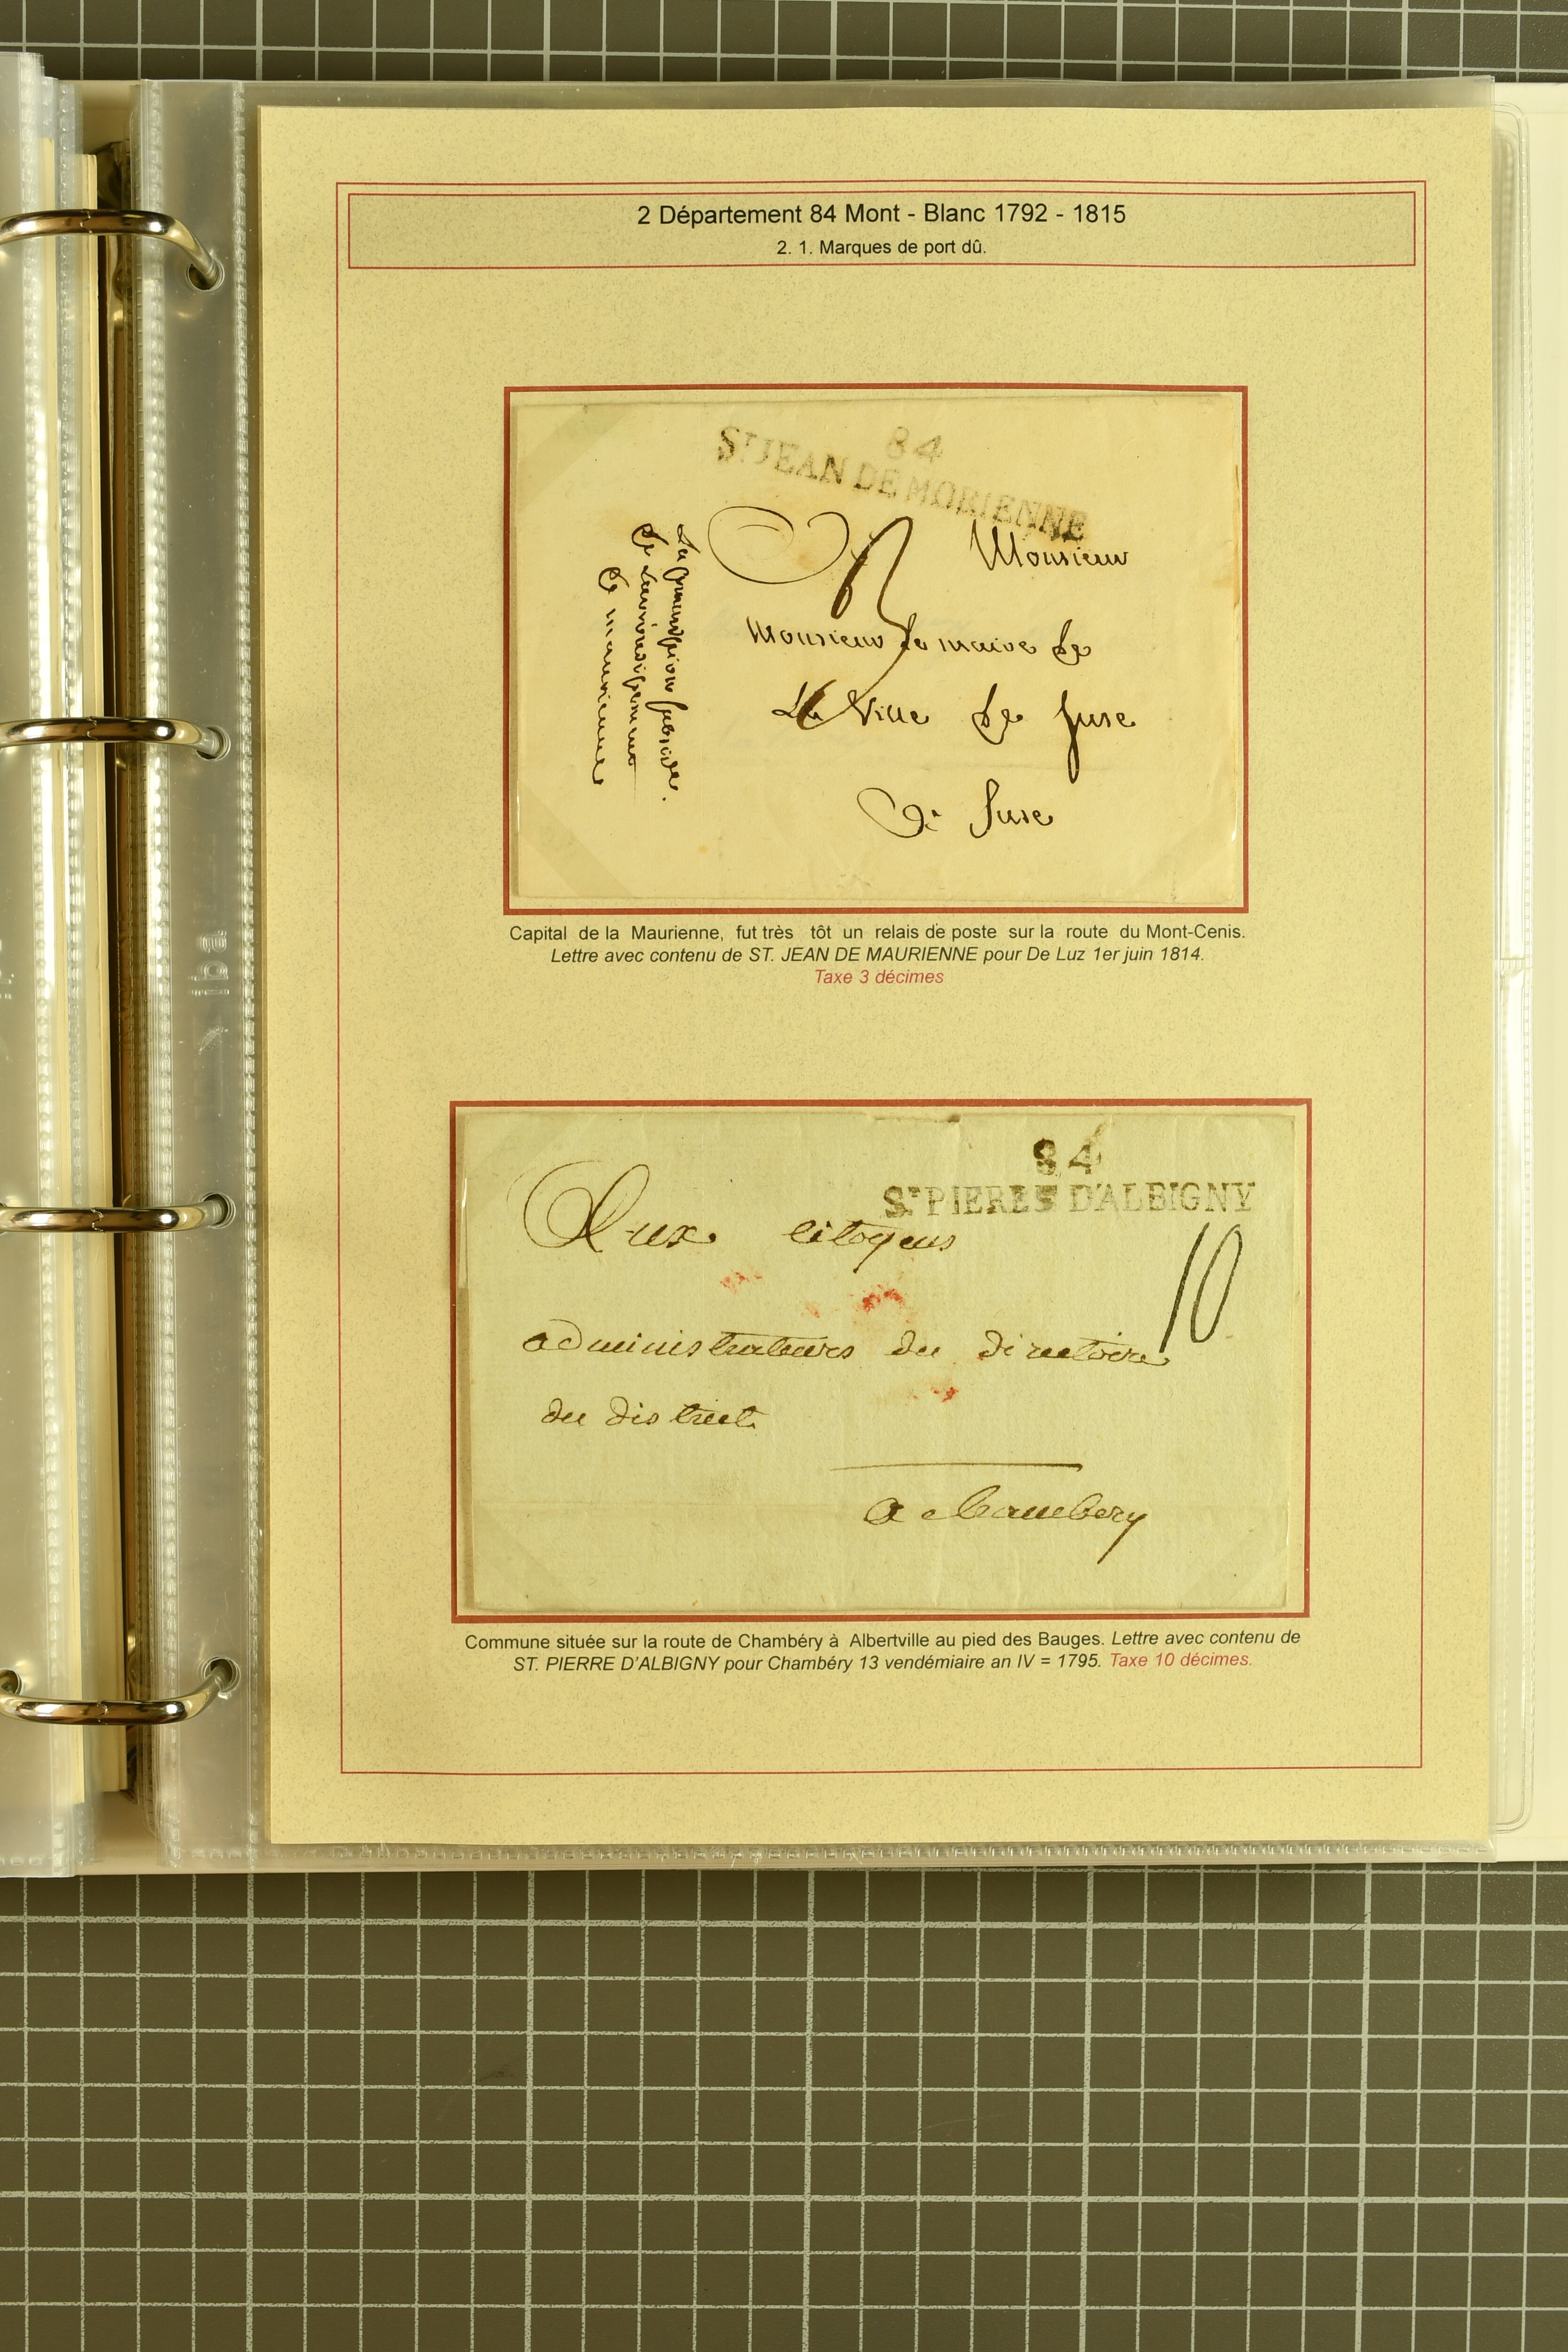 2 Département 84 Mont - Blanc 1792 - 1815
2. 1. Marques de port dû.
84
ST JEAN DE MORIENNE
Monsieur
Monsieur le maire de
La Ville de Suse
à Suse
3
De maurienne
Capital de la Maurienne, fut très tôt un relais de poste sur la route du Mont-Cenis.
Lettre avec contenu de ST. JEAN DE MAURIENNE pour De Luz 1er juin 1814.
Taxe 3 décimes
84
ST PIERRE D'ALBIGNY
10
Aux citoyens
administrateurs du directoire
du district
a chambery
Commune située sur la route de Chambéry à Albertville au pied des Bauges. Lettre avec contenu de
ST. PIERRE D'ALBIGNY pour Chambéry 13 vendémiaire an IV = 1795. Taxe 10 décimes.
iba